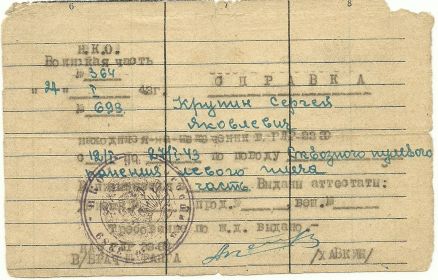 6 7 8
Н.К.О.
Воинская часть
№ 364
"24" I 43г.
СПРАВКА
№ 693
Крупин Сергей
Яковлевич
находился на излечении в ГЛР-2330
с по 24/I-43 по поводу Сквозного пулевого
ранения левого плеча
часть Выданы аттестаты:
прод.№ , вещ.№
Требование по ж.д. выдано -
В/ВРАЧ РАНГА /ХАВКИН/